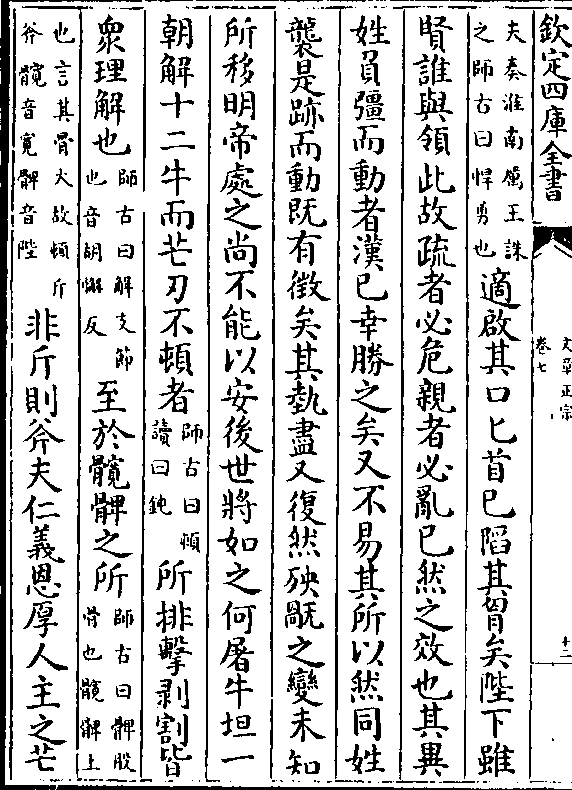 欽定四庫全書
文章正宗
卷七
十二
夫奏淮南厲王誅
之師古曰悍勇也
適啟其口匕首已陷其胷矣陛下雖
賢誰與領此故疏者必危親者必亂已然之效也其異
姓負彊而動者漢已幸勝之矣又不易其所以然同姓
襲是跡而動既有徵矣其埶盡又復然殃䴡之變未知
所移明帝處之尚不能以安後世將如之何屠牛坦一
朝解十二牛而芒刃不頓者
師古曰頓
讀曰鈍
所排擊剥割皆
衆理解也
師古曰解支節
也音胡懈反
至於髖髀之所
師古曰髀股
骨也髖髀上
也言其骨大故頓斤
斧髖音寛髀音陛
非斤則斧夫仁義恩厚人主之芒